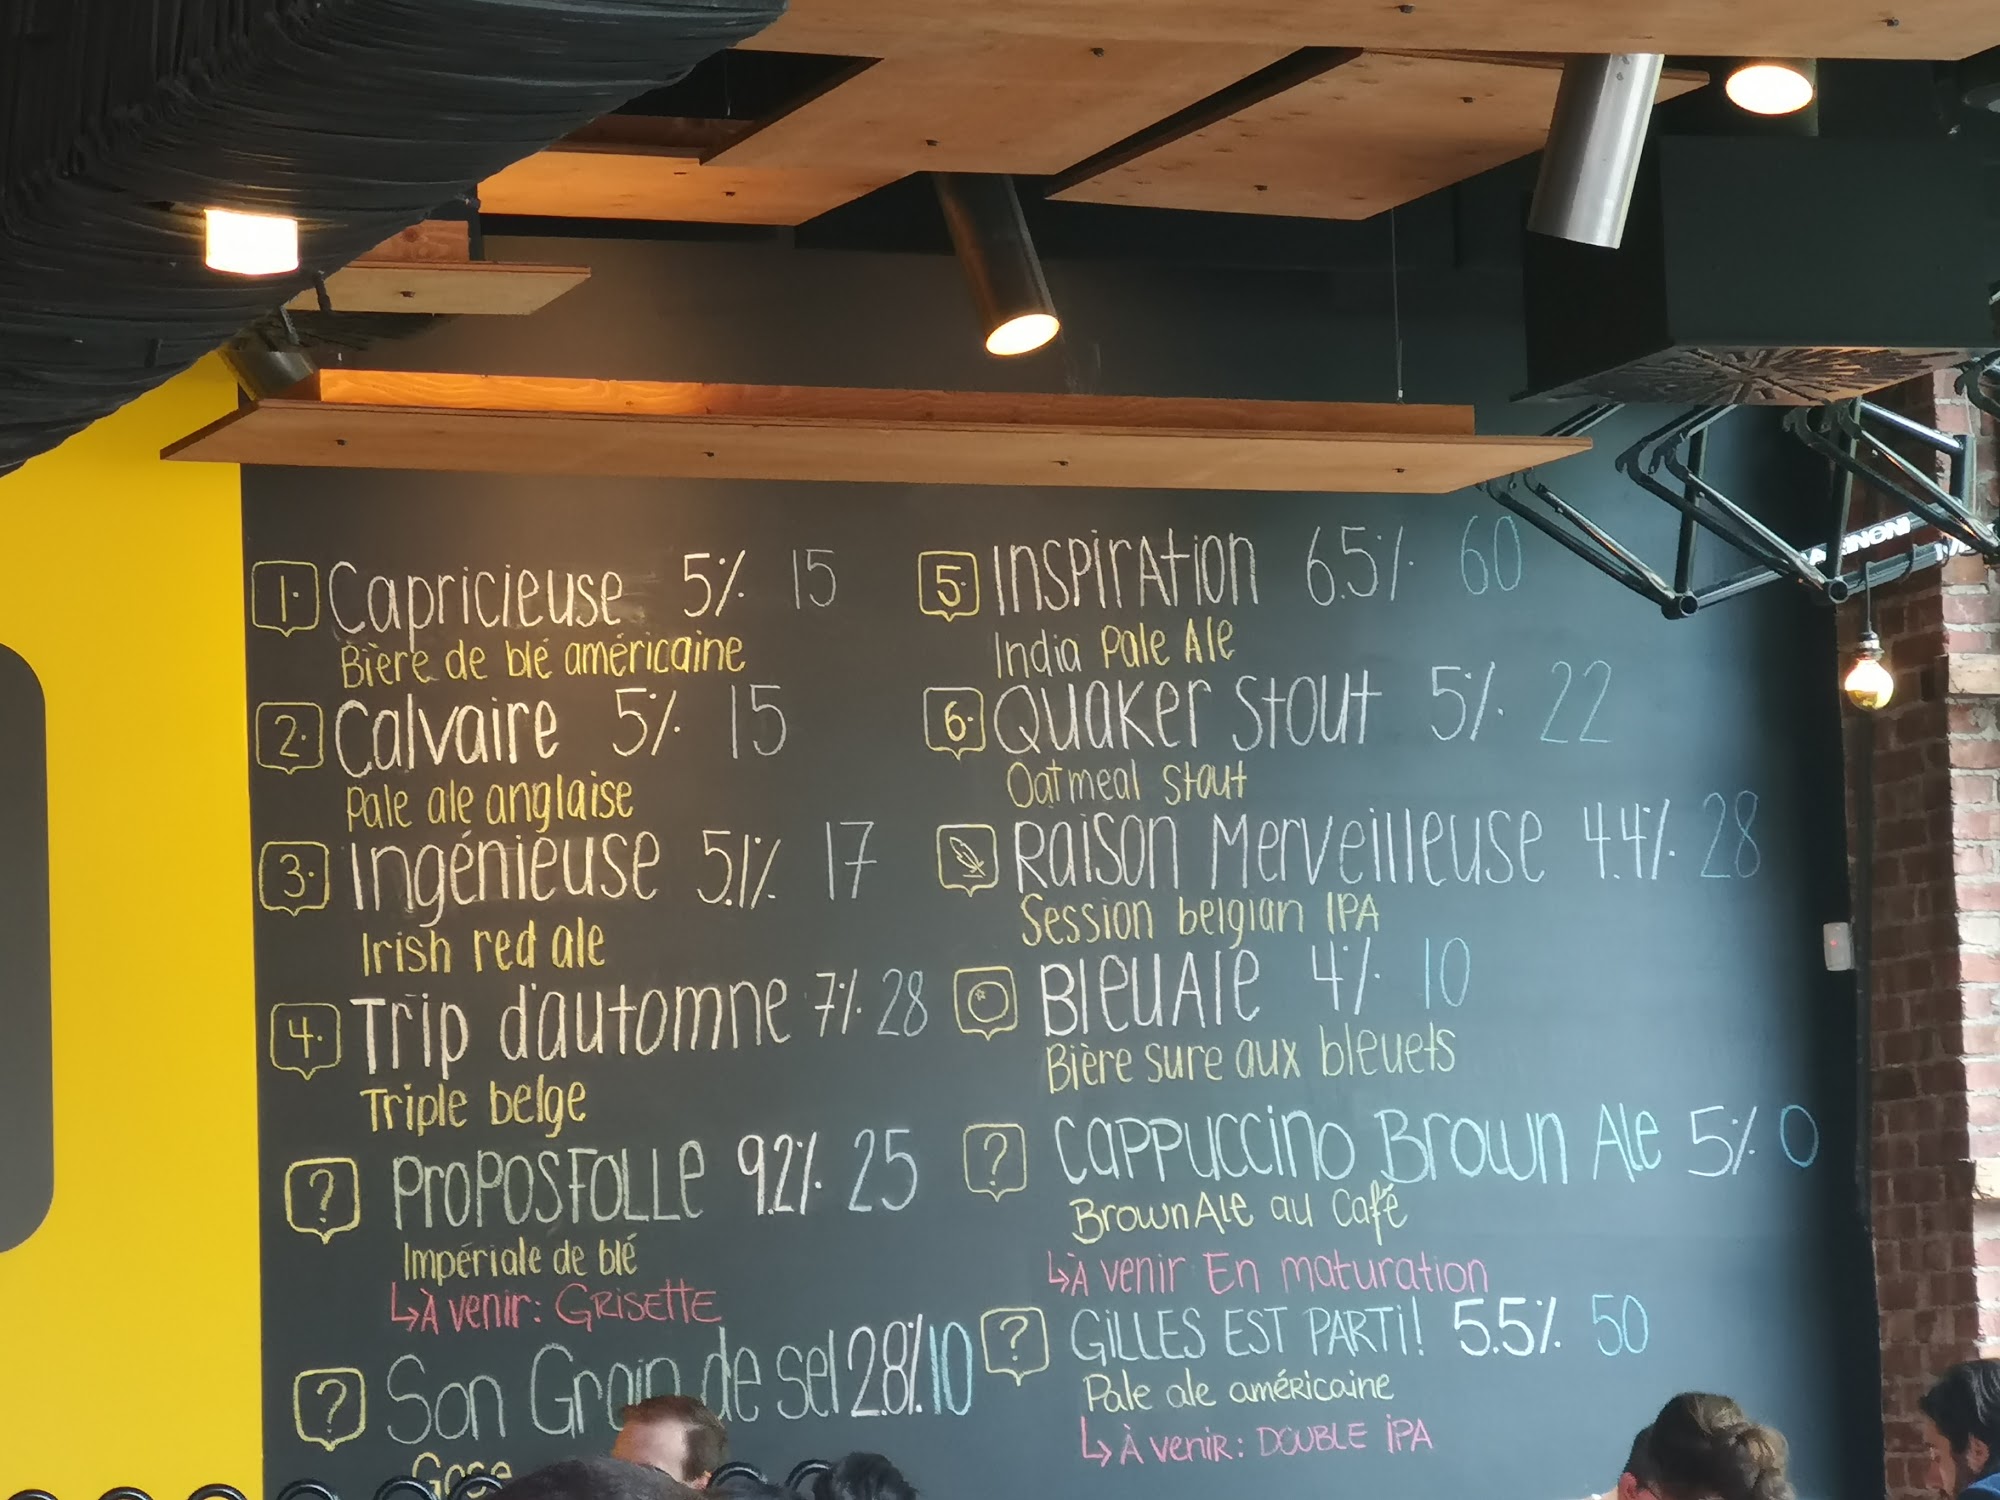 1. Capricieuse 5% 15
Bière de blé américaine
2. Calvaire 5% 15
Pale ale anglaise
3. Ingénieuse 5.1% 17
Irish red ale
4. Trip d'automne 7% 28
Triple belge
? PROPOSFOLLE 9.2% 25
Impériale de blé
↳À venir: GRISETTE
? Son Grain de sel 2.8% 10
Gose
5. INSPIrAtion 6.5% 60
India Pale Ale
6. QUAKEr Stout 5% 22
Oatmeal stout
RAISON Merveilleuse 4.4% 28
Session belgian IPA
BleuAle 4% 10
Bière sure aux bleuets
? CAPPUCCINO Brown Ale 5% 0
Brown Ale au Café
↳À venir En maturation
? GILLES EST PARTI! 5.5% 50
Pale ale américaine
↳À venir: DOUBLE IPA
MARINONI